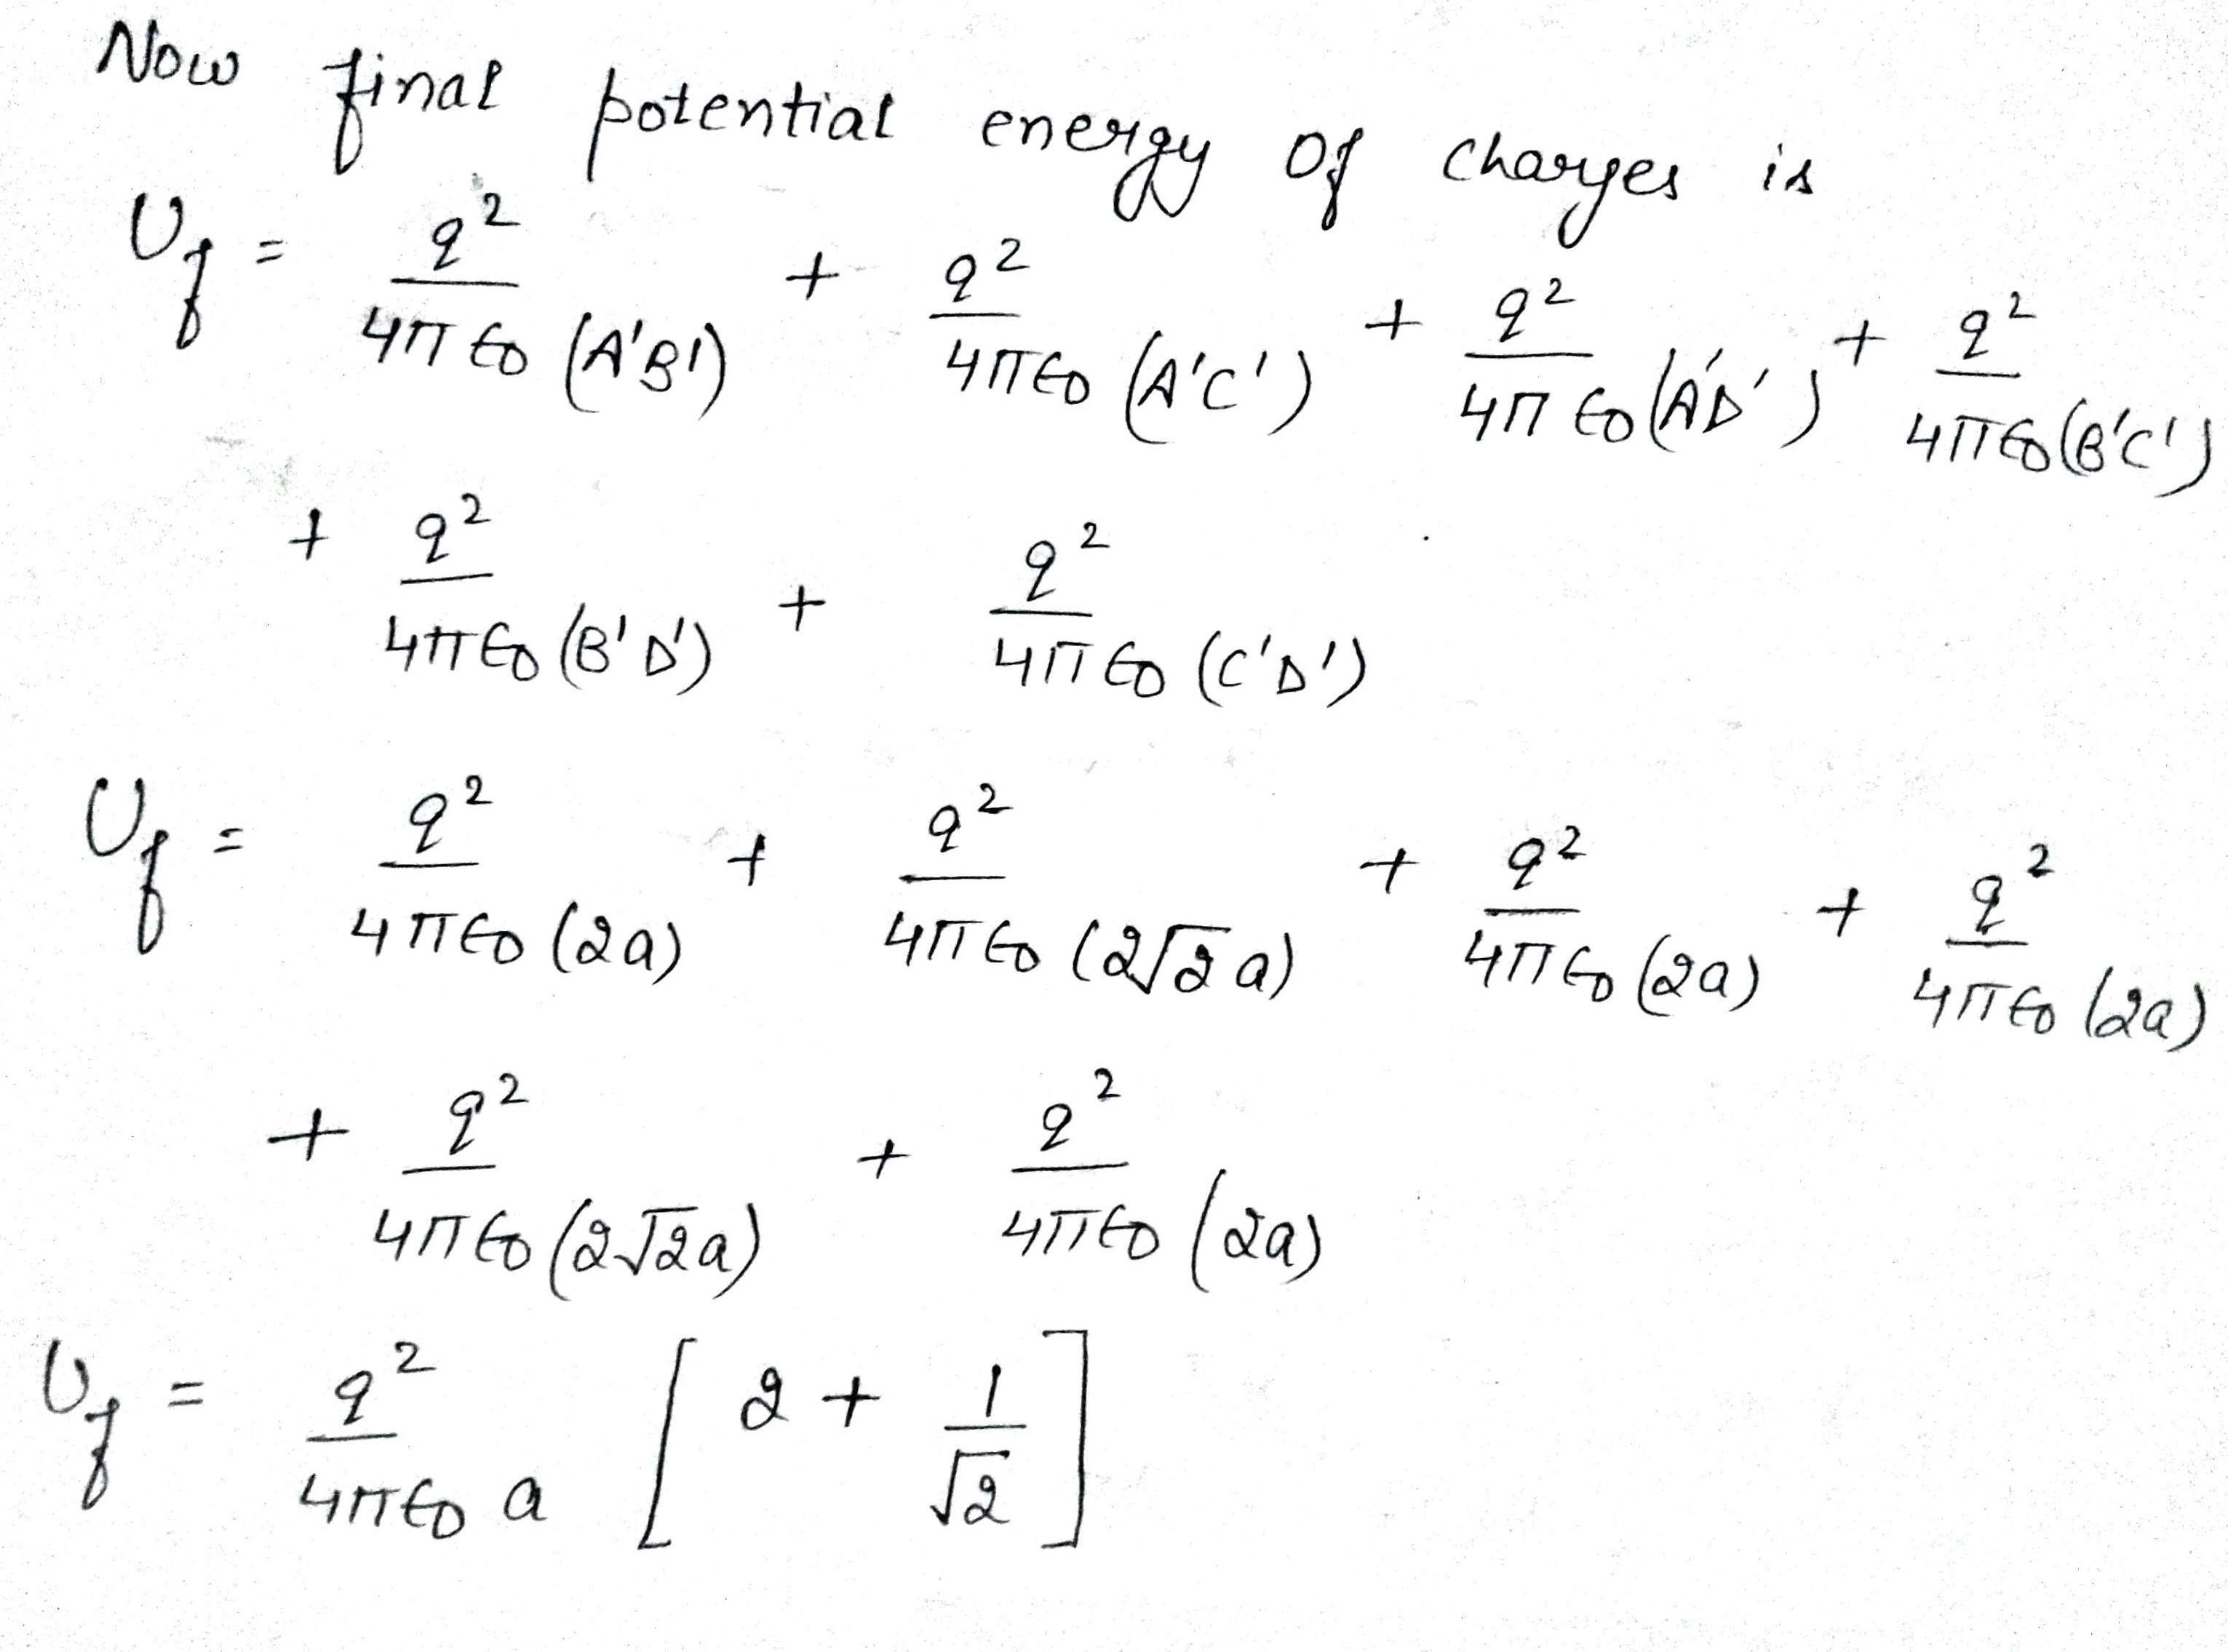 Now final potential energy of charges is
U_f = q²/4πε₀(A'B') + q²/4πε₀(A'C') + q²/4πε₀(A'D') + q²/4πε₀(B'C')
+ q²/4πε₀(B'D') + q²/4πε₀(C'D')
U_f = q²/4πε₀(2a) + q²/4πε₀(2√2a) + q²/4πε₀(2a) + q²/4πε₀(2a)
+ q²/4πε₀(2√2a) + q²/4πε₀(2a)
U_f = q²/4πε₀a [2 + 1/√2]